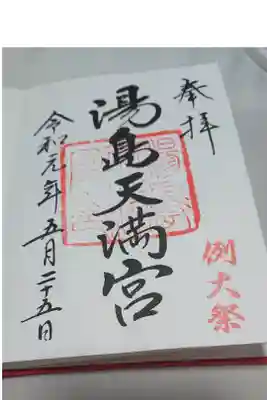 奉拝
湯島天満宮
例大祭
令和元年五月二十五日